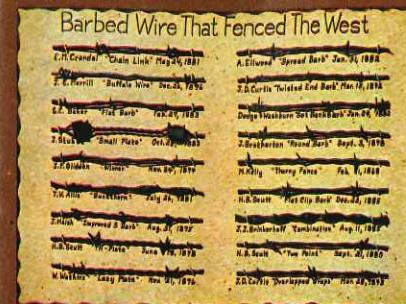 Barbed Wire That Fenced The West
E.M. Crandal "Chain Link" May 24, 1881
J. C. Merrill "Buffalo Wire" Dec.
G.C. Baker "Flat Barb" Feb.
J. Stubbe "Small Plate" Oct.
J.F. Glidden "Winner" Nov. 24, 1874
T.V. Allis "Buckthorn" July 26, 1881
J. Haish "Improved S Barb" Aug. 31, 1875
H.B. Scutt "H-Plate" June 1878
W. Watkins "Lazy Plate" Nov. 1876
A. Ellwood "Spread Barb" Jan. 31, 1882
J.D. Curtis "Twisted End Barb" Mar.
Dodge & Washburn Jan.
J. Brotherton "Round Barb" Sept. 3, 1878
M. Kelly "Thorny Fence" Feb. 1868
H.B. Scutt "Flat Clip Barb" Dec.
J.J. Brinkerhoff "Combination" Aug. 11,
H.B. Scutt "Two Point" Sept. 1880
J.D. Curtis "Overlapped Wraps" Mar.